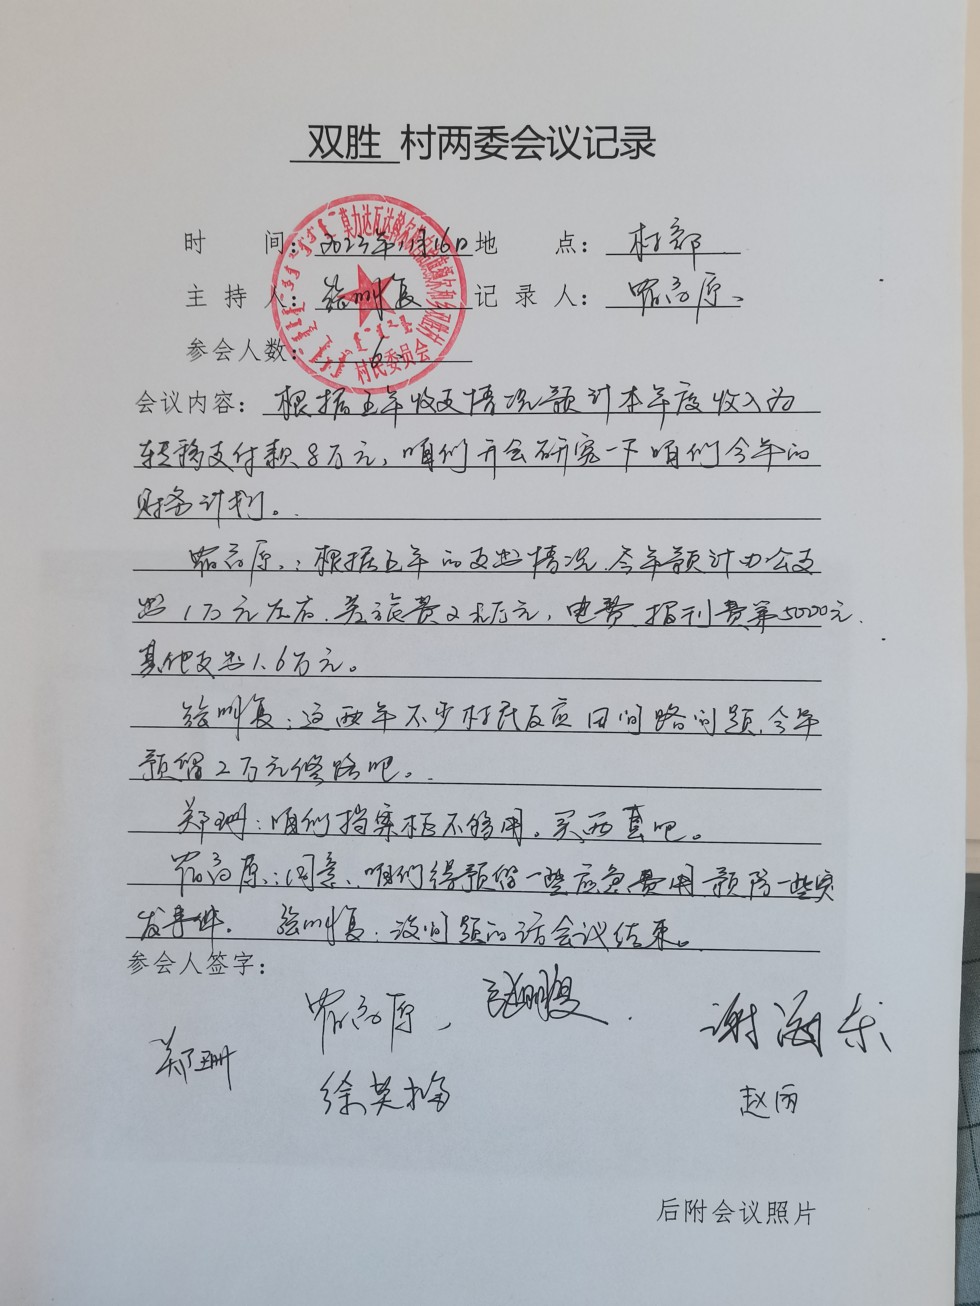 双胜 村两委会议记录
时 间： 2023年 月16日 地 点： 村部
主 持 人： 记 录 人： 高原
参会人数： 6
村民委员会
会议内容： 根据五年收支情况预计本年度收入为
转移支付款8万元，咱们开会研究一下咱们今年的
财务计划。
高原：根据五年的支出情况.今年预计办公支
出1万元左右.差旅费2 万元，电费 报刊费等5000元.
其他支出1.6万元。
：这两年不少村民反应田间路问题.今年
预留2万元修路吧。
郑珊：咱们档案柜不够用。买两 吧。
高原：同意、咱们得预留一些应急费用.预防一些突
发事件。 ：没问题的话会议结束。
参会人签字：
高原
谢海东
郑珊
徐英梅
赵丽
后附会议照片